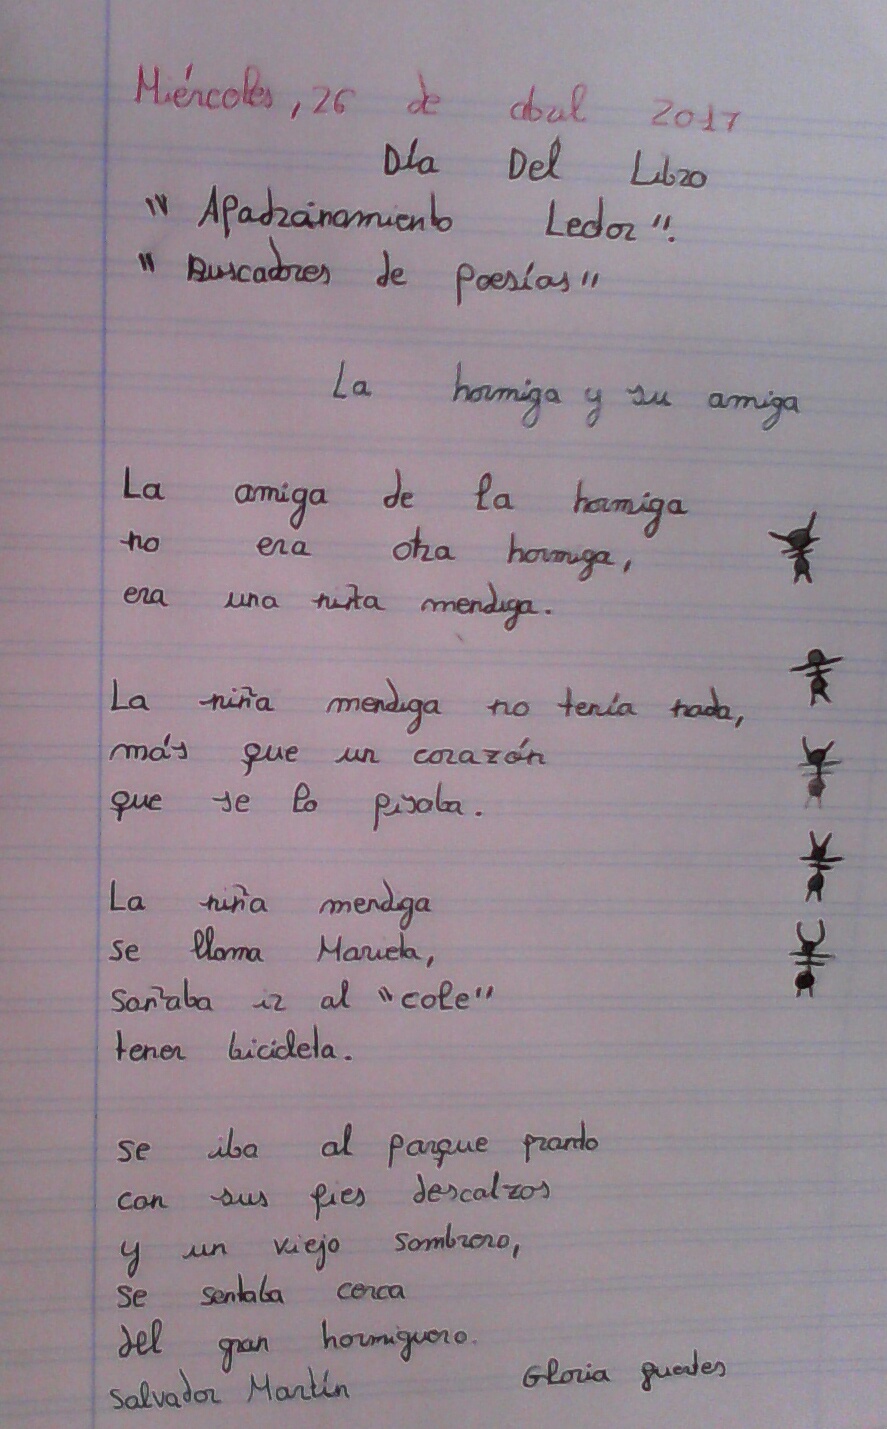 Miércoles, 26 de abril 2017
Día Del Libro
"Apadrinamiento Lector".
"Buscadores de poesías"
La hormiga y su amiga
La amiga de la hormiga
no era otra hormiga,
era una niña mendiga.
La niña mendiga no tenía nada,
más que un corazón
que se lo pisaba.
La niña mendiga
se llama Mariela,
Soñaba ir al "cole"
tener bicicleta.
Se iba al parque pronto
con sus pies descalzos
y un viejo sombrero,
se sentaba cerca
del gran hormiguero.
Salvador Martín Gloria fuertes